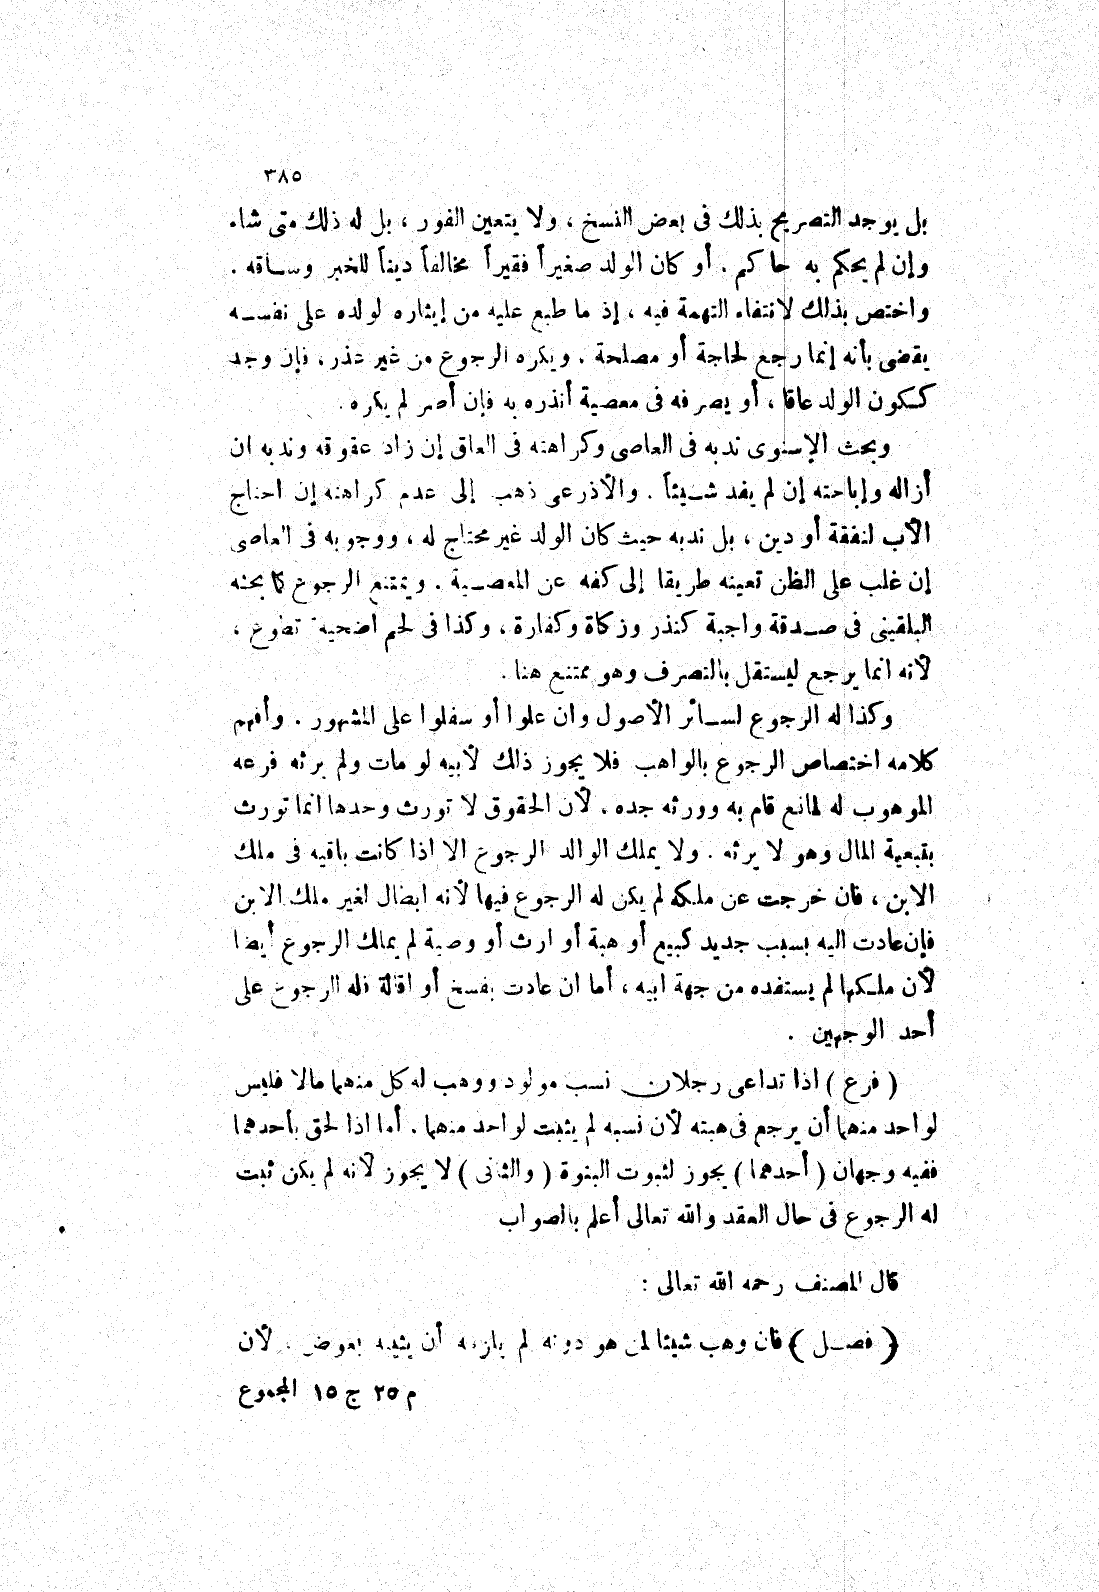 ٣٨٥
بل يوجد التصريح بذلك فى بعض النسخ ، ولا يتعين الفور ، بل له ذلك متى شاء
وإن لم يحكم به حاكم . أو كان الولد صغيراً فقيراً مخالفاً ديناً للخبر وسـاقه .
واختص بذلك لانتفاء التهمة فيه ، إذ ما طبع عليه من إيثاره لولده على نفسـه
يقضى بأنه إنما رجع لحاجة أو مصلحة . ويكره الرجوع من غير عذر ، فإن وجد
ككون الولد عاقا ، أو يصرفه فى معصية أنذره به فإن أصر لم يكره .
وبحث الإسنوى ندبه فى العاصى وكراهته فى العاق إن زاد عقوقه وندبه ان
أزاله وإباحته إن لم يفد شـيئاً . والأذرعى ذهب إلى عدم كراهته إن احتاج
الأب لنفقة أو دين ، بل ندبه حيث كان الولد غير محتاج له ، ووجوبه فى العاصى
إن غلب على الظن تعينه طريقا إلى كفه عن المعصـية . ويمتنع الرجوع كما بحثه
البلقينى فى صـدقة واجبة كنذر وزكاة وكفارة ، وكذا فى لحم اضحية تطوع ،
لأنه انما يرجع ليستقل بالتصرف وهو ممتنع هنا .
وكذا له الرجوع لسـائر الأصول وان علوا أو سفلوا على المشهور . وأفهم
كلامه اختصاص الرجوع بالواهب فلا يجوز ذلك لأبيه لو مات ولم يرثه فرعه
الموهوب له لمانع قام به وورثه جده ، لأن الحقوق لا تورث وحدها انما تورث
بتبعية المال وهو لا يرثه . ولا يملك الوالد الرجوع الا اذا كانت باقيه فى ملك
الابن ، فان خرجت عن ملكه لم يكن له الرجوع فيها لأنه ابطال لغير ملك الابن
فإن عادت اليه بسبب جديد كبيع أو هبة أو ارث أو وصية لم يملك الرجوع أيضا
لأن ملكها لم يستفده من جهة ابيه ، أما ان عادت بفسخ أو اقالة فله الرجوع على
أحد الوجهين .
( فرع ) اذا تداعى رجلان نسب مولود ووهب له كل منهما مالا فليس
لواحد منهما أن يرجع فى هبته لأن نسبه لم يثبت لواحد منهما . أما اذا لحق بأحدهما
ففيه وجهان ( أحدهما ) يجوز لثبوت البنوة ( والثانى ) لا يجوز لأنه لم يكن ثبت
له الرجوع فى حال العقد والله تعالى أعلم بالصواب
قال المصنف رحمه الله تعالى :
( فصـل ) فان وهب شيئا لمن هو دونه لم يلزمه أن يثيبه بعوض ، لأن
م ٢٥ ج ١٥ المجموع